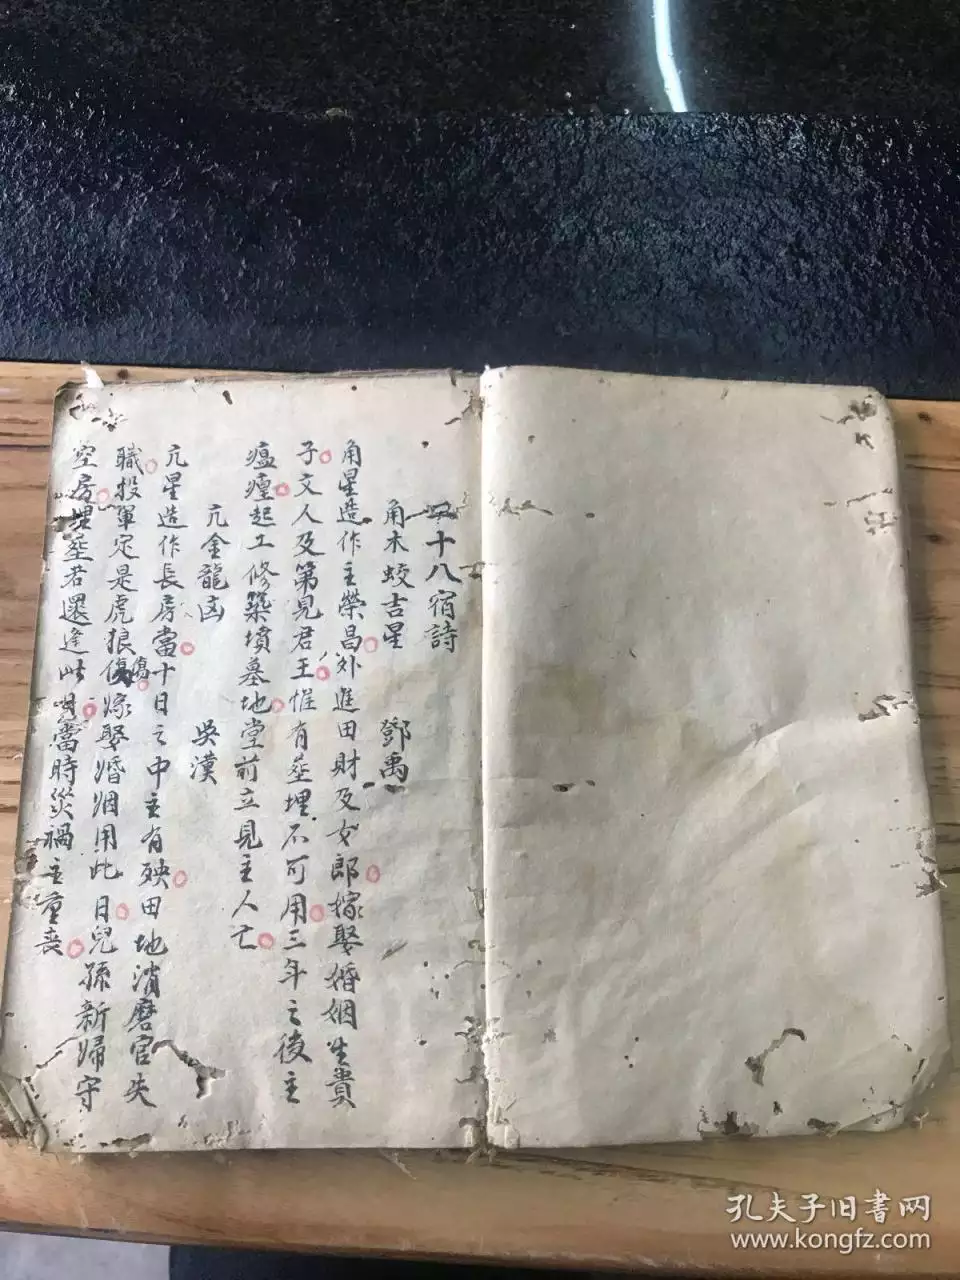 二十八宿詩
角木蛟吉星 鄧禹
角星造作主榮昌外進田財及女郎嫁娶婚姻生貴
子文人及第見君王惟有葬埋不可用三年之後主
瘟㾮起工修築墳墓地堂前立見主人亡
亢金龍凶 吳漢
亢星造作長房當十日之中主有殃田地消磨官失
職投軍定是虎狼傷嫁娶婚姻用此日兒孫新婦守
空房埋葬若還逢此日當時災禍主重喪
孔夫子旧书网
www.kongfz.com